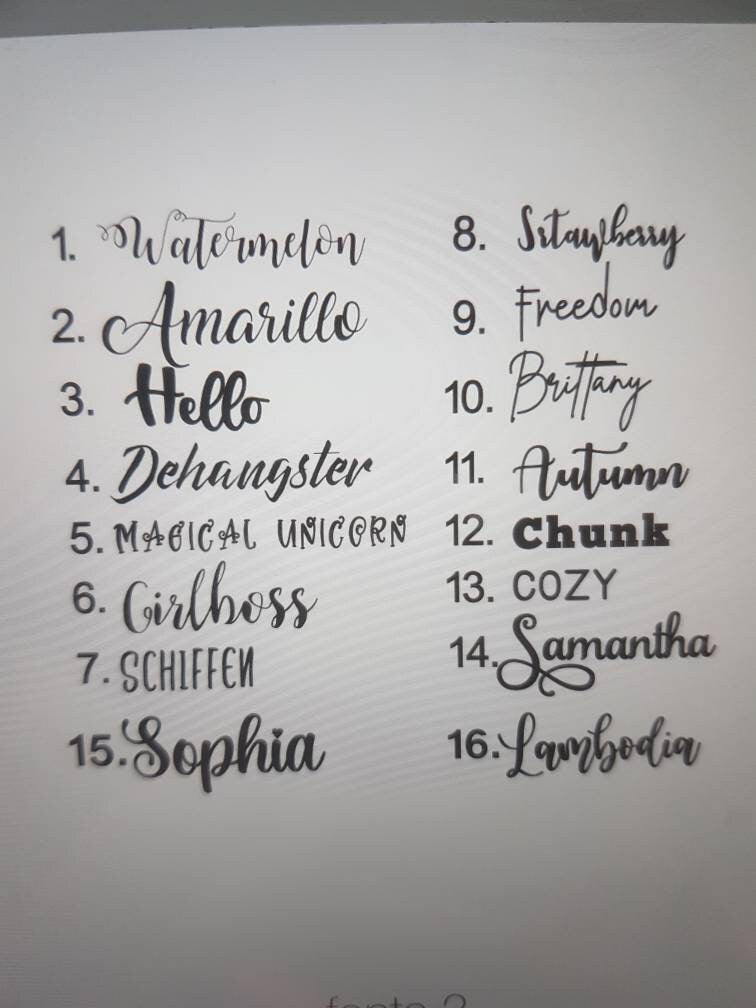 1. Watermelon
2. Amarillo
3. Hello
4. Dehangster
5. MAGICAL UNICORN
6. Girlboss
7. SCHIFFEN
15. Sophia
8. Sstawberry
9. Freedom
10. Brittany
11. Autumn
12. Chunk
13. COZY
14. Samantha
16. Lambodia